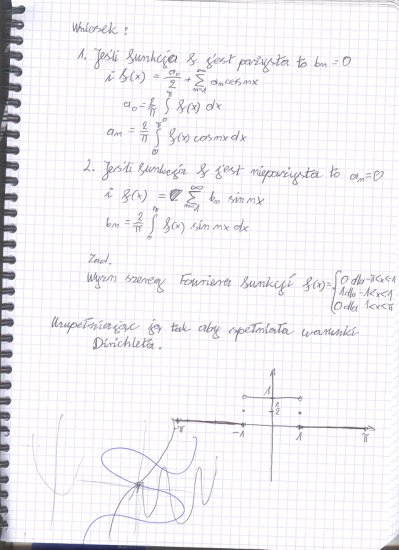 Wniosek:
1. Jeśli funkcja f jest parzysta to bₙ=0
i f(x) = a₀/2 + ∑_{n=1}^{∞} aₙ cos nx
a₀ = 2/π ∫_0^π f(x) dx
aₙ = 2/π ∫_0^π f(x) cos nx dx
2. Jeśli funkcja f jest nieparzysta to aₙ=0
i f(x) = ∑_{n=1}^{∞} bₙ sin nx
bₙ = 2/π ∫_0^π f(x) sin nx dx
Zad.
Wyzn szereg Fouriera funkcji f(x)= { 0 dla -π<x<-1
1 dla -1<x<1
0 dla 1<x<π
Uzupełniając ją tak aby spełniała warunki
Dirichleta.
1
1/2
-π -1 1 π